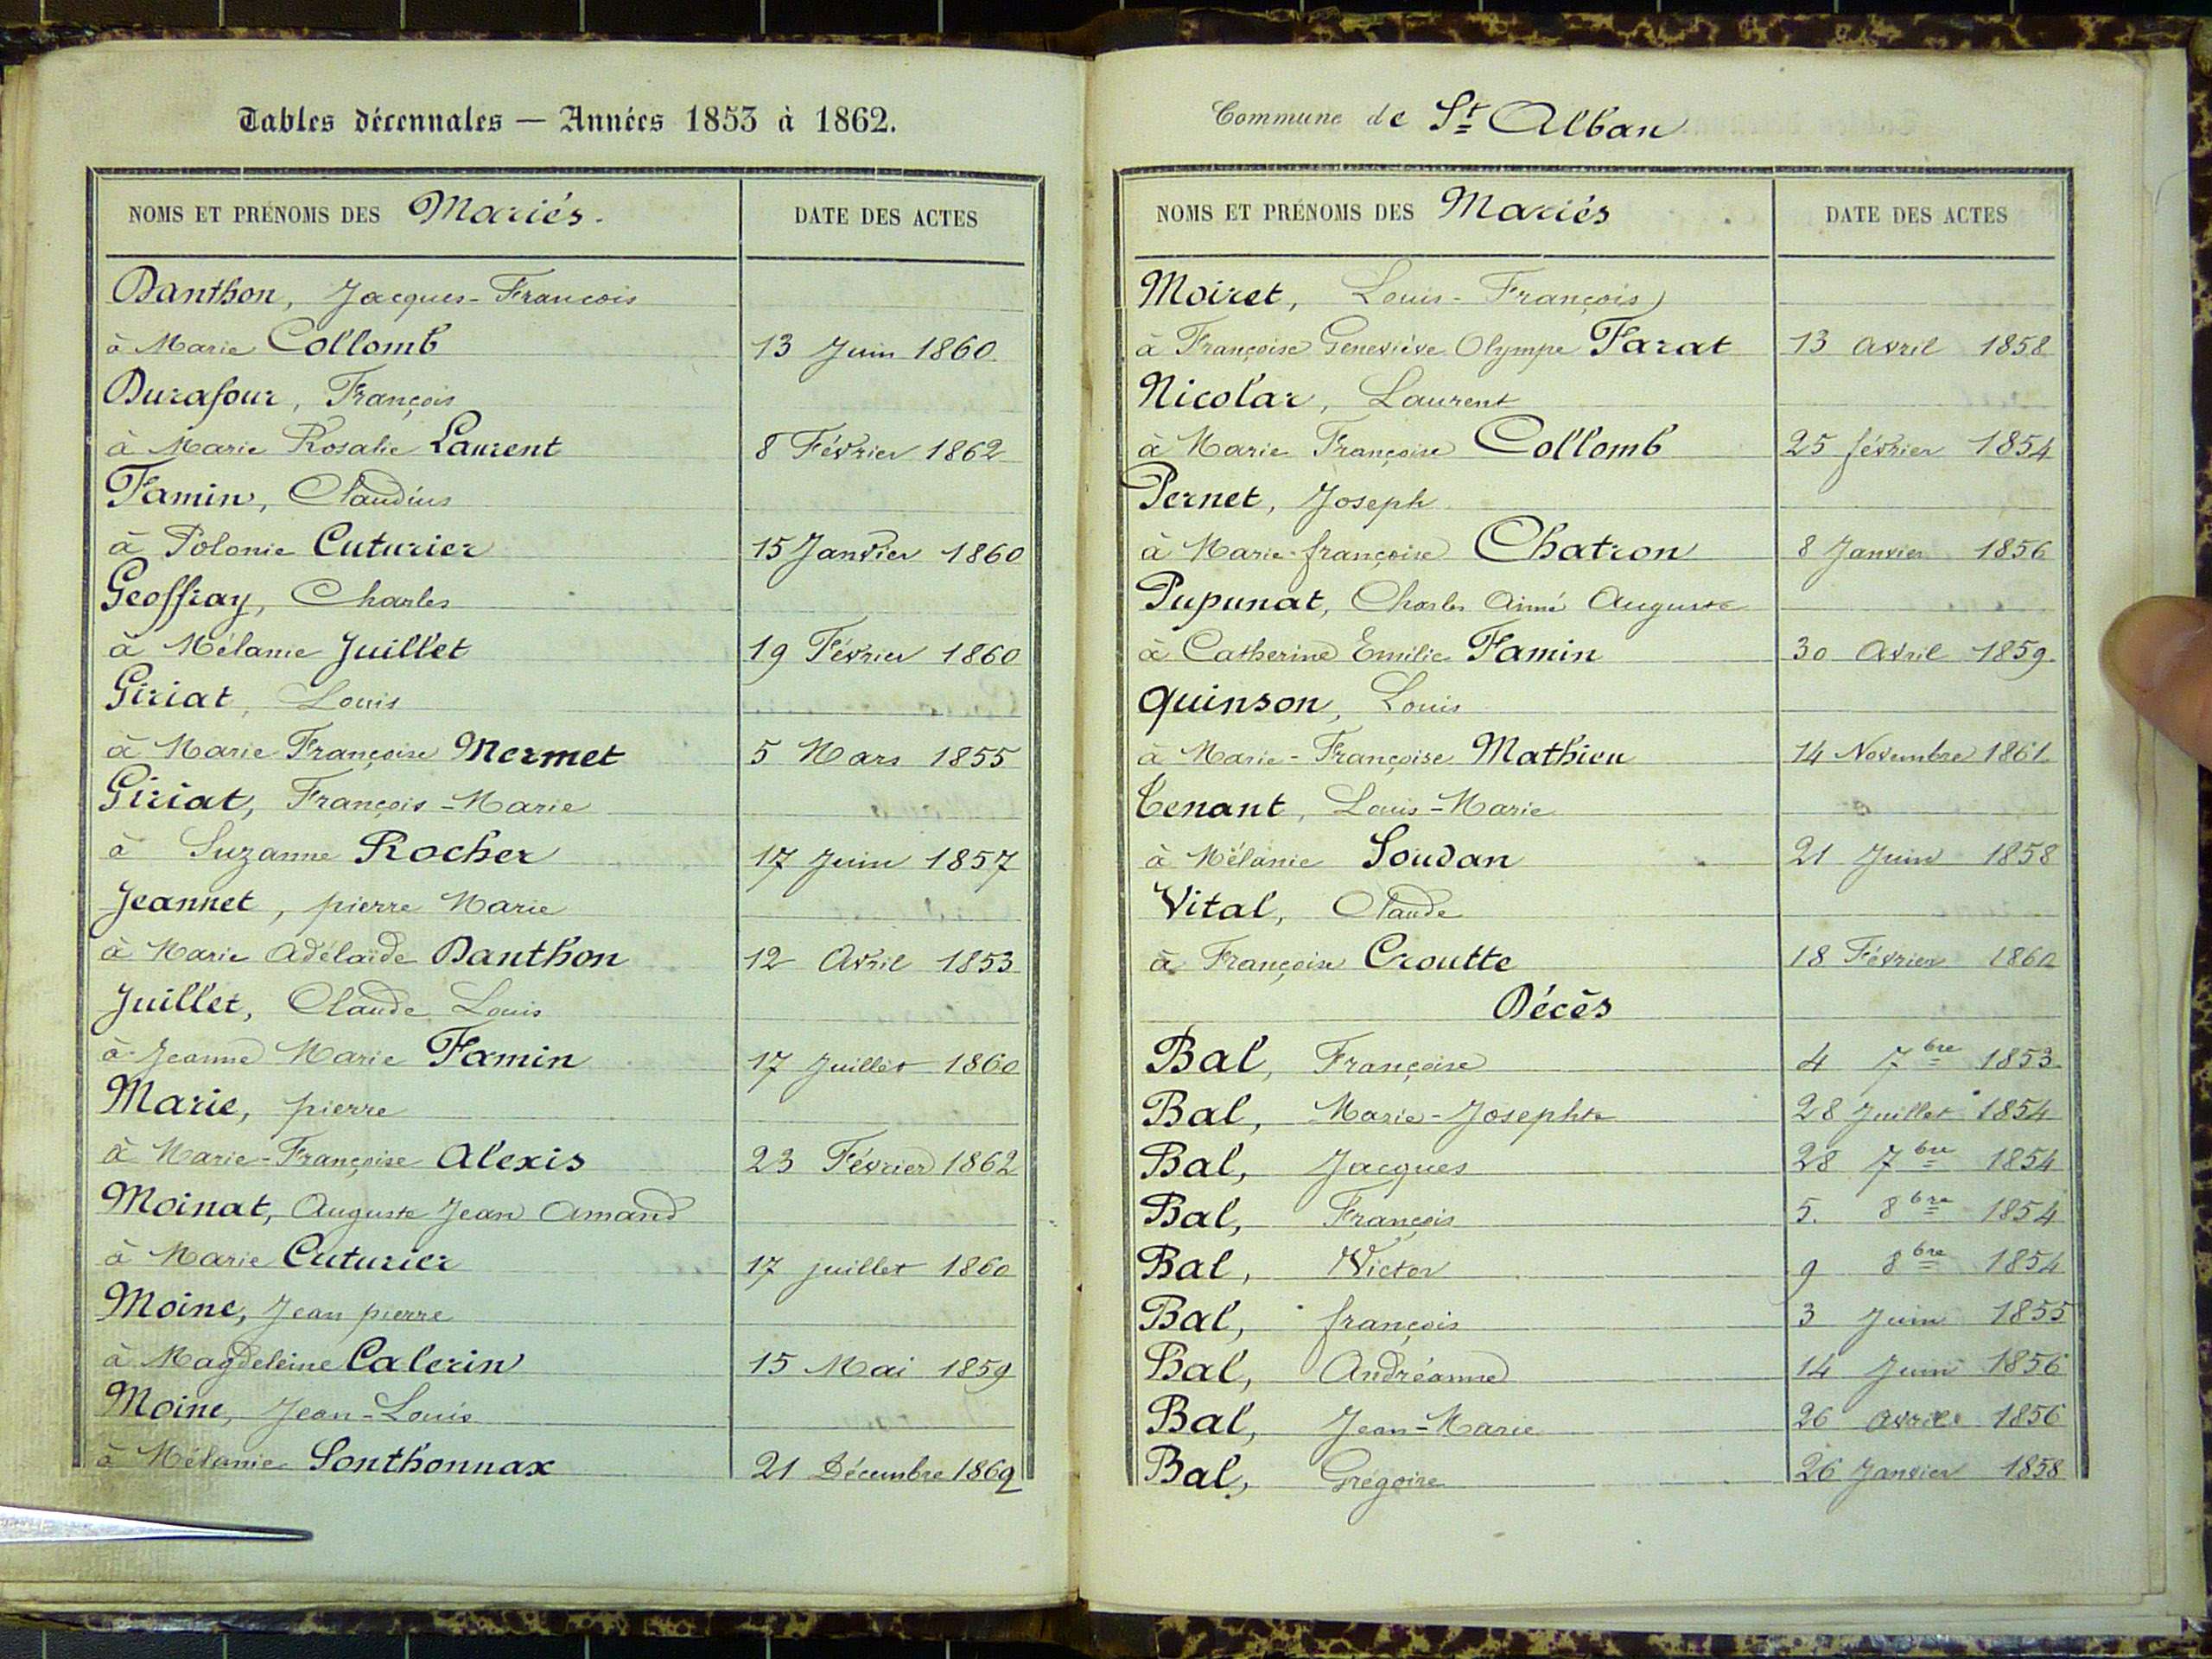 Tables décennales — Années 1853 à 1862.
NOMS ET PRÉNOMS DES Mariés. DATE DES ACTES
Danthon, Jacques-Francois
à Marie Collomb 13 Juin 1860
Durafour, François
à Marie Rosalie Laurent 8 Février 1862
Famin, Claudius
à Polonie Cuturier 15 Janvier 1860
Geoffray, Charles
à Mélanie Juillet 19 Février 1860
Giriat, Louis
à Marie Françoise Mermet 5 Mars 1855
Giriat, François-Marie
à Suzanne Rocher 17 Juin 1857
Jeannet, pierre Marie
à Marie Adélaïde Danthon 12 Avril 1853
Juillet, Claude Louis
à Jeanne Marie Famin 17 Juillet 1860
Marie, pierre
à Marie-Françoise Alexis 23 Février 1862
Moinat, Auguste Jean Amand
à Marie Cuturier 17 juillet 1860
Moine, Jean pierre
à Magdeleine Calerin 15 Mai 1859
Moine, Jean-Louis
à Mélanie Sonthonnax 21 Décembre 1862
Commune de St Alban
NOMS ET PRÉNOMS DES Mariés DATE DES ACTES
Moiret, Louis-François
à Françoise Geneviève Olympe Farat 13 avril 1858
Nicolar, Laurent
à Marie Françoise Collomb 25 février 1854
Pernet, Joseph
à Marie-françoise Chatron 8 Janvier 1856
Pupunat, Charles Aimé Auguste
à Catherine Emilie Famin 30 Avril 1859.
Quinson, Louis
à Marie-Françoise Mathieu 14 Novembre 1861
Tenant, Louis-Marie
à Mélanie Soudan 21 Juin 1858
Vital, Claude
à Françoise Croutte 18 Février 1860
Décès
Bal, Françoise 4 7bre 1853
Bal, Marie-Josephte 28 Juillet 1854
Bal, Jacques 28 7bre 1854
Bal, François 5. 8bre 1854
Bal, Victor 9 8bre 1854
Bal, françois 3 Juin 1855
Bal, Andréanne 14 Juin 1856
Bal, Jean-Marie 26 avril 1856
Bal, Grégoire 26 Janvier 1858